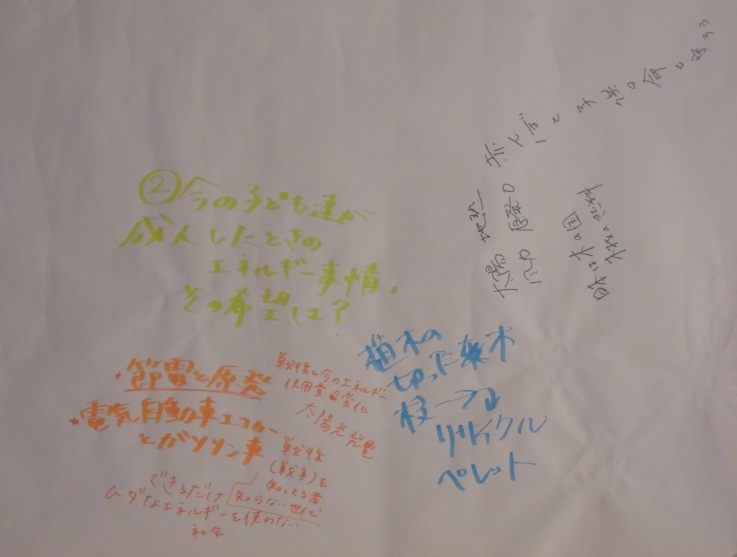 ②今の子ども達が
成人したときの
エネルギー事情、
その希望は？
・節電と原発
★電気自動車エコカー
とガソリン車
戦後と今のエネルギー
使用量の変化
太陽光発電
戦後
(戦争)を
知ってる者
知らない世代
できるだけ
ムダなエネルギーを使わない
社会
植木の
切った
枝→
リサイクル
ペレット
太陽
エネルギー
日本は木の国